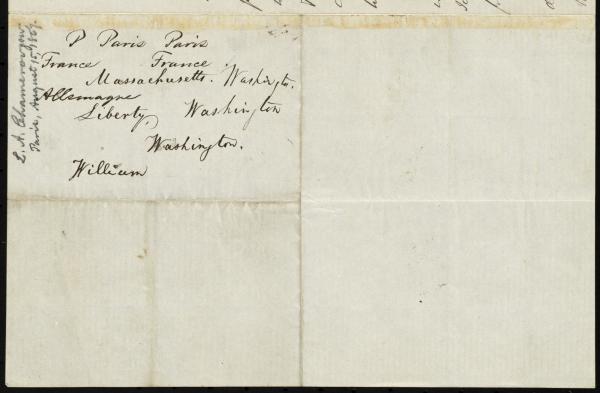 P Paris Paris
France France
Massachusetts. Washington.
Allemagne
Liberty, Washington
Washington.
William
L. A. Chamerovzow,
Paris, August 15, 1867.